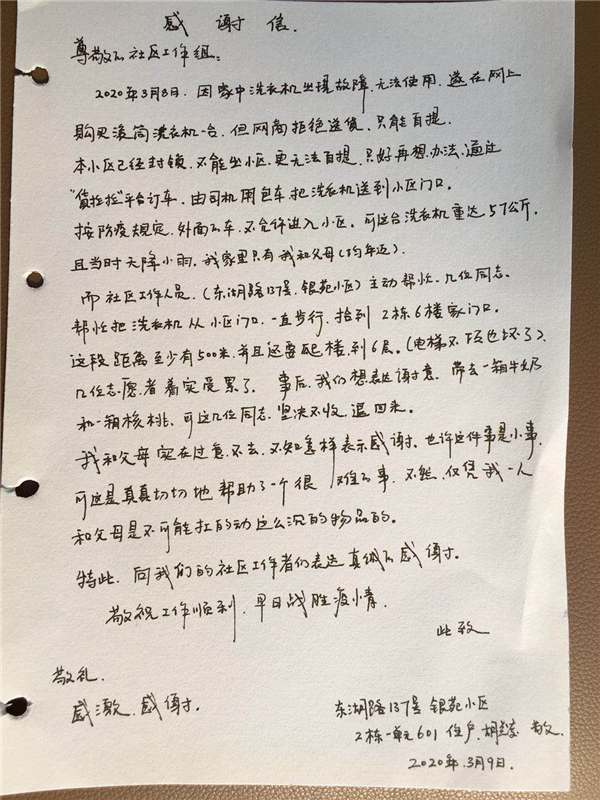 感谢信.
尊敬的社区工作组:
2020年3月8日.因家中洗衣机出现故障,无法使用.遂在网上
购买滚筒洗衣机一台,但网商拒绝送货.只能自提.
本小区已经封锁.不能出小区.更无法自提.只好再想办法,通过
"货拉拉"平台订车.由司机用包车把洗衣机送到小区门口.
按防疫规定.外面的车.不允许进入小区.可这台洗衣机重达57公斤,
且当时天降小雨.我家里只有我和父母(均年迈).
而社区工作人员.(东湖路137号.银苑小区)主动帮忙.几位同志.
帮忙把洗衣机从小区门口.一直步行.抬到2栋6楼家门口.
这段距离至少有500米.并且还要爬楼.到6层.(电梯不巧也坏了).
几位志愿者着实受累了.事后,我们想表达谢意.带去一箱牛奶
和一箱核桃.可这几位同志.坚决不收.退回来.
我和父母实在过意不去.不知怎样表示感谢.也许这件事是小事.
可这是真真切切地帮助了一个很难的事.不然,仅凭我一人
和父母是不可能扛的动这么沉的物品的.
特此.向我们的社区工作者们表达真诚的感谢.
敬祝工作顺利,早日战胜疫情.
此致
敬礼.
感激.感谢.
东湖路137号银苑小区
2栋一单元601住户.胡 敬.
2020年.3月9日.